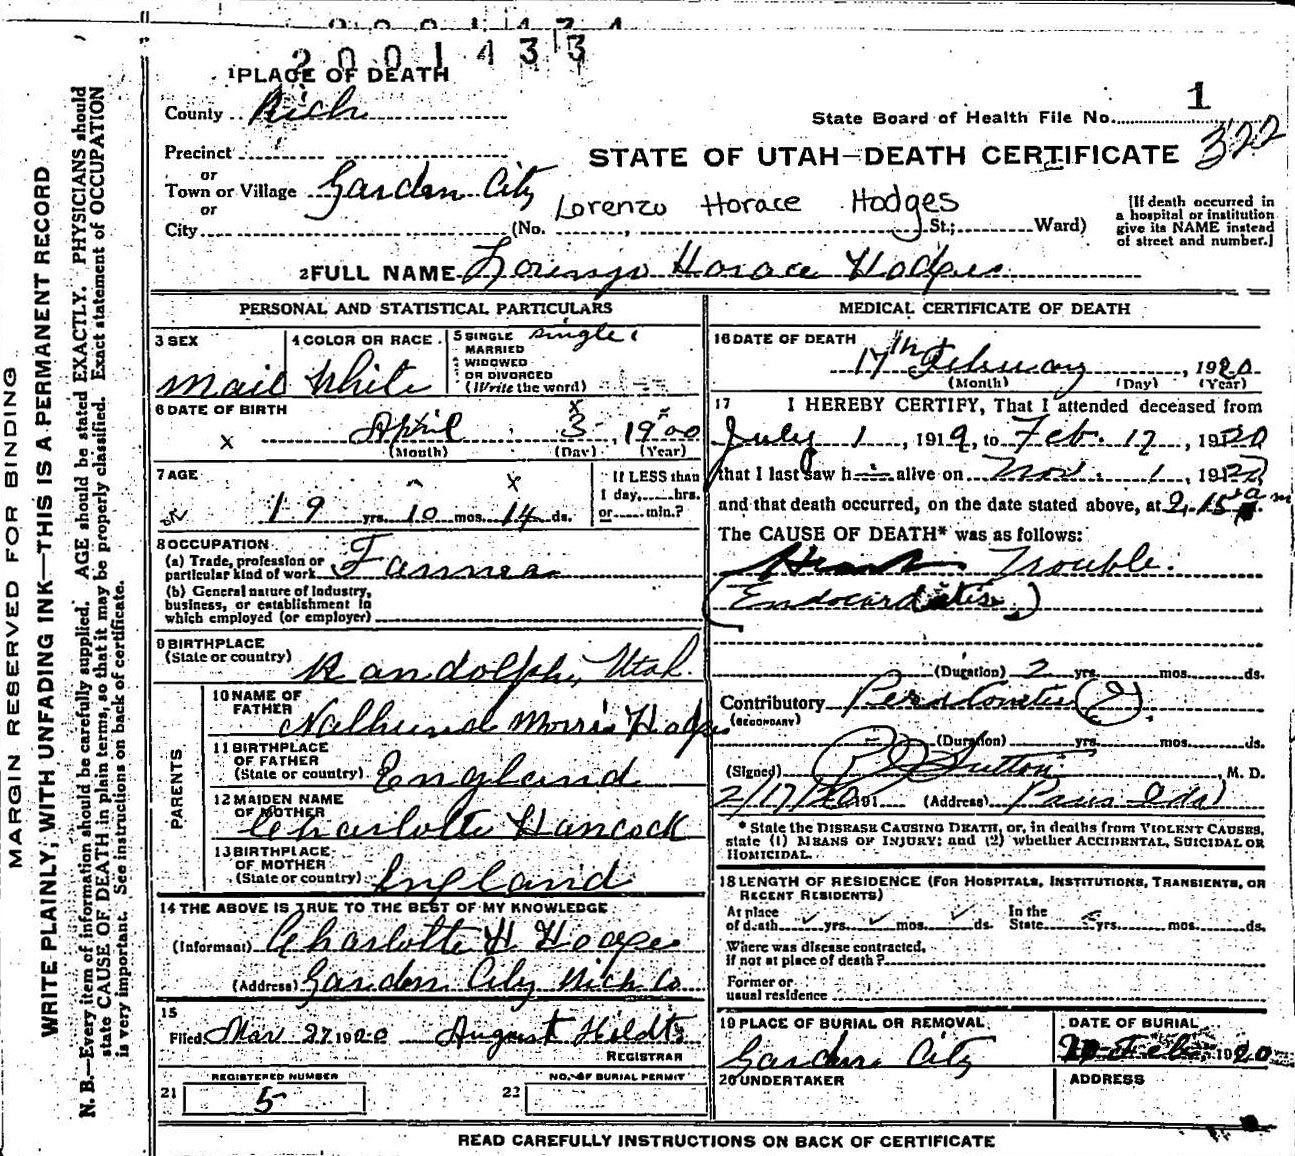 2001433
1 PLACE OF DEATH
County Rich
1
State Board of Health File No.
322
Precinct
STATE OF UTAH—DEATH CERTIFICATE
or
Town or Village Garden City
or
Lorenzo Horace Hodges
City (No. , St.; Ward)
[If death occurred in
a hospital or institution
give its NAME instead
of street and number.]
2 FULL NAME Lorenzo Horace Hodges
MARGIN RESERVED FOR BINDING
WRITE PLAINLY, WITH UNFADING INK—THIS IS A PERMANENT RECORD
N. B.—Every item of information should be carefully supplied. AGE should be stated EXACTLY. PHYSICIANS should
state CAUSE OF DEATH in plain terms, so that it may be properly classified. Exact statement of OCCUPATION
is very important. See instructions on back of certificate.
PERSONAL AND STATISTICAL PARTICULARS
3 SEX
Mail
4 COLOR OR RACE
White
5 SINGLE
MARRIED
WIDOWED
OR DIVORCED
(Write the word)
single
6 DATE OF BIRTH
x April 3 1900
(Month) (Day) (Year)
7 AGE
19 yrs. 10 mos. 14 ds.
If LESS than
1 day, hrs.
or min.?
8 OCCUPATION
(a) Trade, profession or
particular kind of work Farmer
(b) General nature of Industry,
business, or establishment in
which employed (or employer)
9 BIRTHPLACE
(State or country) Randolph, Utah
PARENTS
10 NAME OF
FATHER
Morris Hodges
11 BIRTHPLACE
OF FATHER
(State or country) England
12 MAIDEN NAME
OF MOTHER
Charlotte Hancock
13 BIRTHPLACE
OF MOTHER
(State or country) England
14 THE ABOVE IS TRUE TO THE BEST OF MY KNOWLEDGE
(Informant) Charlotte H Hodges
(Address) Garden City Rich Co
15
Filed Mar 27 1920 August Hildt
REGISTRAR
REGISTERED NUMBER
21 5
NO. OF BURIAL PERMIT
22
MEDICAL CERTIFICATE OF DEATH
16 DATE OF DEATH
17th February, 1920
(Month) (Day) (Year)
17 I HEREBY CERTIFY, That I attended deceased from
July 1, 1919, to Feb. 17, 1920
that I last saw h alive on Nov. 1, 19
and that death occurred, on the date stated above, at 2.15 a m
The CAUSE OF DEATH* was as follows:
Heart Trouble.
(Endocarditis)
(Duration) 2 yrs. mos. ds.
Contributory
(SECONDARY)
(Duration) yrs. mos. ds.
(Signed) Sutton, M. D.
2/17/20 191 (Address) Paris Ida
* State the DISEASE CAUSING DEATH, or, in deaths from VIOLENT CAUSES,
state (1) MEANS OF INJURY; and (2) whether ACCIDENTAL, SUICIDAL OR
HOMICIDAL.
18 LENGTH OF RESIDENCE (FOR HOSPITALS, INSTITUTIONS, TRANSIENTS, OR
RECENT RESIDENTS)
At place
of death yrs. mos. ds.
In the
State yrs. mos. ds.
Where was disease contracted,
if not at place of death?
Former or
usual residence
19 PLACE OF BURIAL OR REMOVAL
Garden City
DATE OF BURIAL
Feb 1920
20 UNDERTAKER
ADDRESS
READ CAREFULLY INSTRUCTIONS ON BACK OF CERTIFICATE